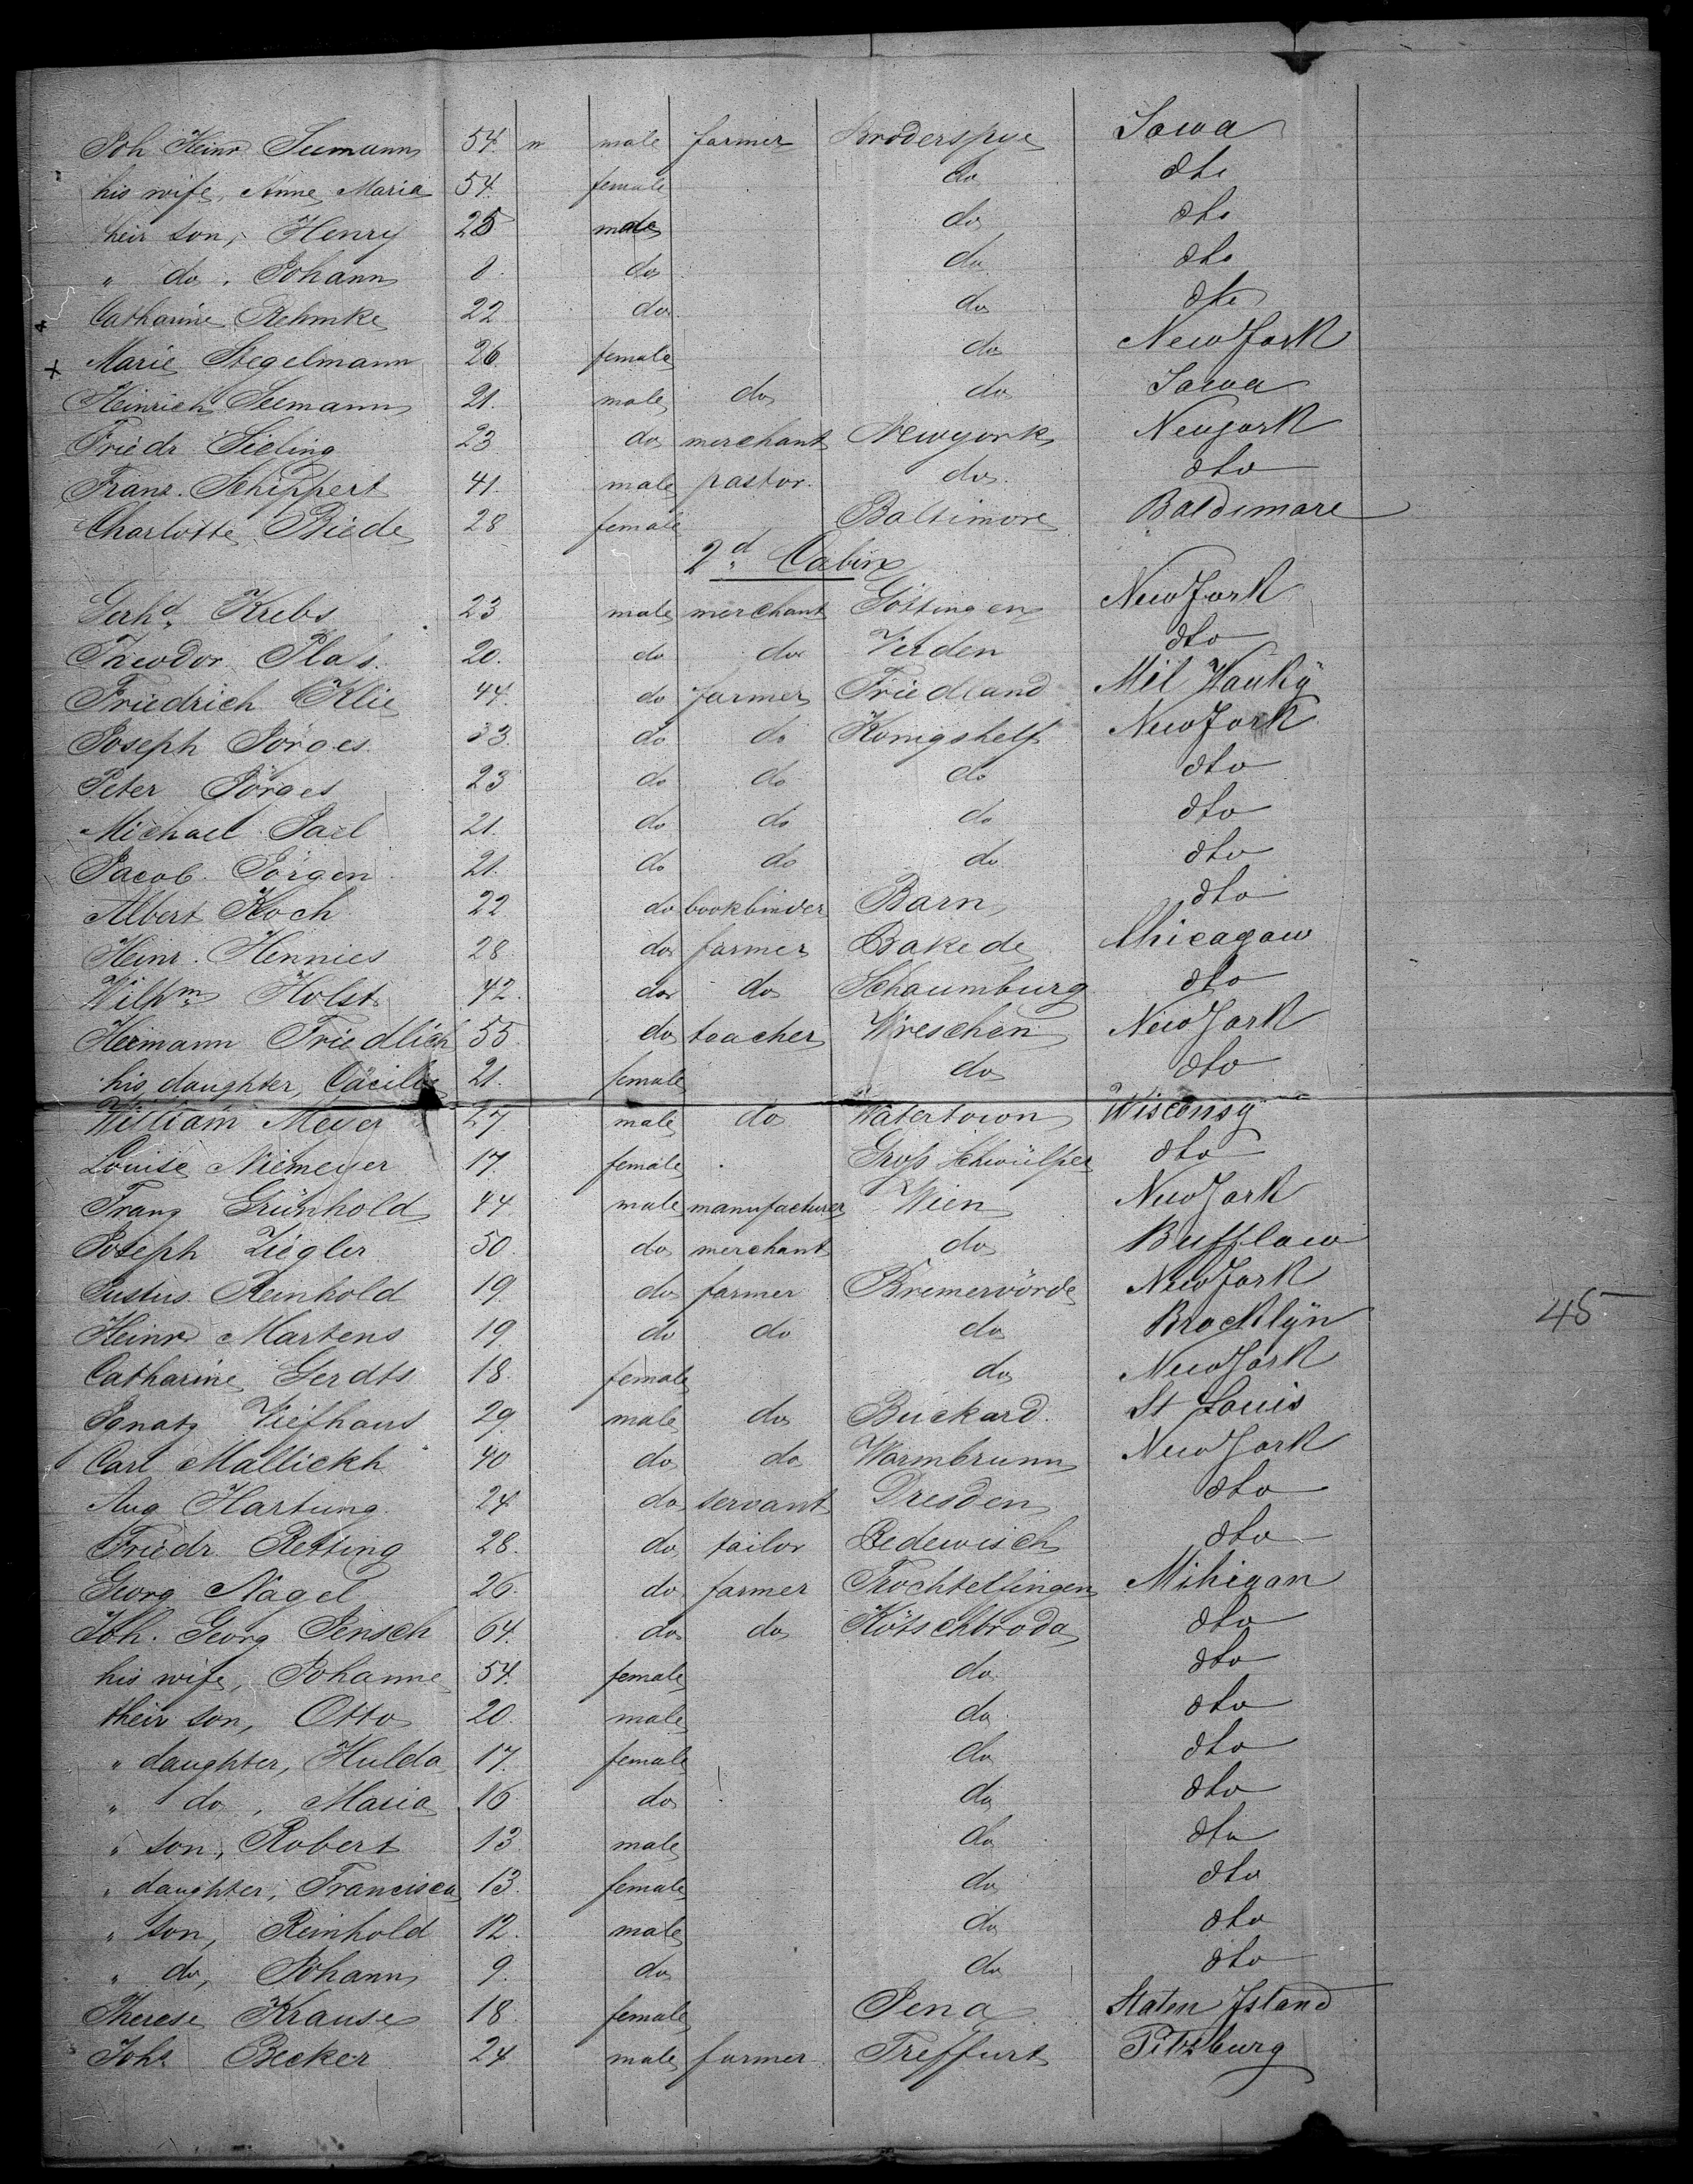 Joh Heinr Seemann 54. m male farmer Broderspye Iowa
his wife, Anne Maria 54. female do dto
their son, Henry 25 male do dto
" do, Johann 8. do do dto
Catharine Rehmke 22 do do dto
x Marie Stegelmann 26. female do New York
Heinrich Seemann 21. male do do Iowa
Friedr Sieling 23 do merchant Newyork Newyork
Franz. Schippert 41. male pastor. do. dto
Charlotte Riede 28 female Baltimore Baldimare
2d. Cabin
Gerhd. Krebs 23 male merchant Göttingen New York
Theodor Plas. 20. do do Verden dto
Friedrich Klie 44. do farmer Friedland Mil Wauky
Joseph Jörges. 33. do do Konigshelf New York
Peter Jörges 23 do do do dto
Michael Jael 21. do do do dto
Jacob. Jörgen 21. do do do dto
Albert Koch 22 do bookbinder Barn dto
Heinr. Hennies 28 do farmer Bakede Chicagow
Wilhm Holst 42. do do Schaumburg dto
Hermann Friedlich 55 do teacher Wreschen New York
his daughter, Cäcilie 21. female do dto
William Meyer 27 male do Watertown Wisconsy
Louise Niemeyer 17. female Groß Schwülper dto
Franz Grünhold 44 male manufacturer Wien New York
Joseph Ziegler 50. do merchant do Bufflaw
Justus Reinhold 19. do farmer Bremervörde New York
Heinr Martens 19. do do do Brocklyn 45
Catharine Gerdts 18. female do New York
Ignatz Viefhaus 29. male do Buckard. St Louis
Carl Mallickh 40 do do Warmbrunn New York
Aug Hartung. 24 do servant Dresden dto
Friedr. Retting 28. do tailor Redewisch dto
Georg Nagel 26. do farmer Trochtelfingen Mihigan
Joh. Georg Jensch 64. do do Kötschbroda dto
his wife, Johanne 54. female do dto
their son, Otto 20. male do dto
" daughter, Hulda 17. female do dto
" do, Maria 16 do do dto
" son, Robert 13. male do dto
" daughter, Francisca 13. female do dto
" son, Reinhold 12. male do dto
" do, Johann 9. do do dto
Therese Krause 18. female Jena Staten Island
Johs Becker 24 male farmer Treffurt Pitzburg